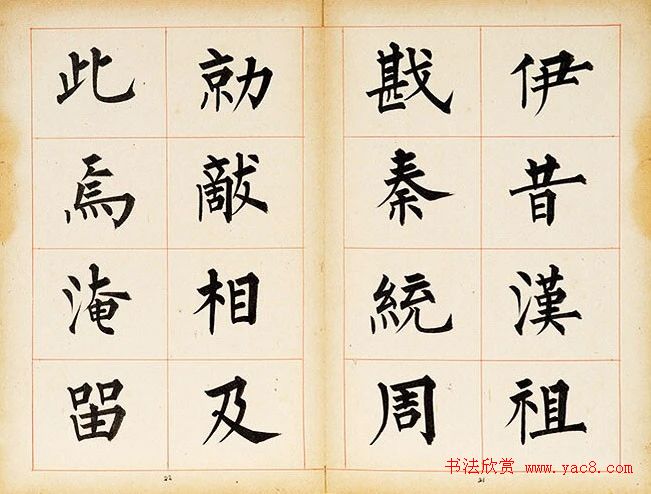 伊昔漢祖
戡秦統周
勍敵相及
此焉淹留
书法欣赏 www.yac8.com
22
21